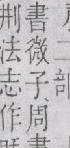 部
書微子周書
刑法志作